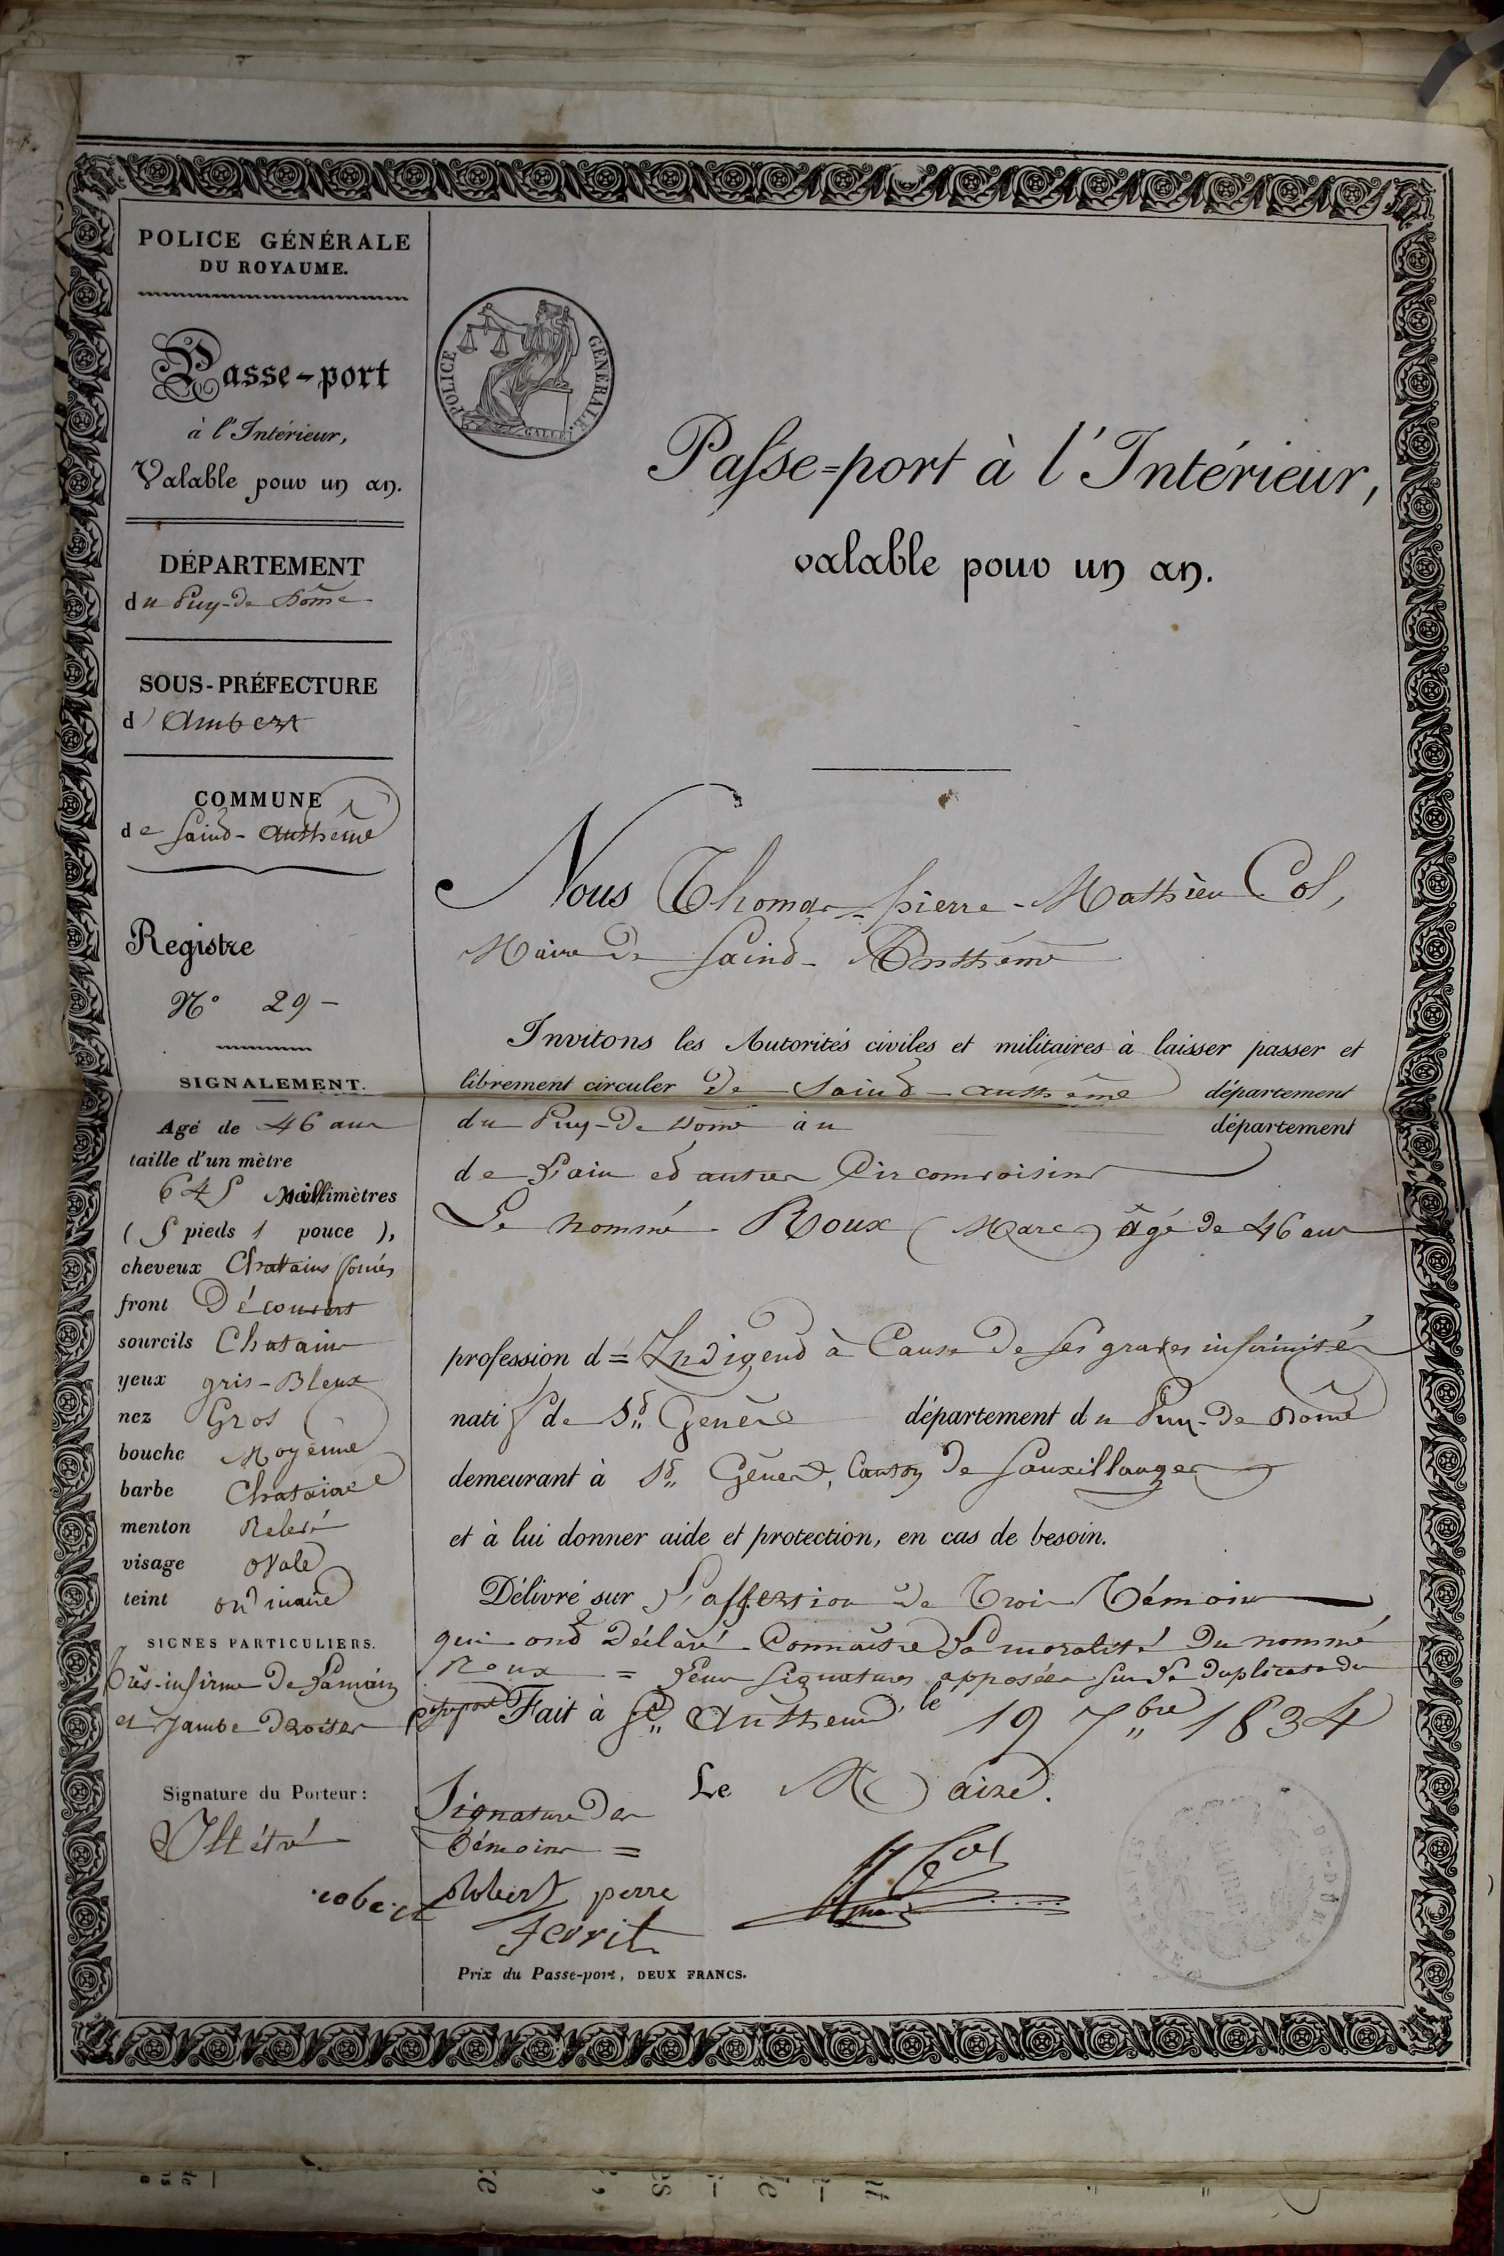 POLICE GÉNÉRALE
DU ROYAUME.
Passe-port
à l'Intérieur,
Valable pour un an.
DÉPARTEMENT
du Puy-de Dôme
SOUS-PRÉFECTURE
d'Ambert
COMMUNE
de Saint-Anthême
Registre
N° 29-
SIGNALEMENT.
Agé de 46 ans
taille d'un mètre
645 Millimètres
(5 pieds 1 pouce ),
cheveux Chatains
front Découvert
sourcils Chatains
yeux gris-Bleux
nez Gros
bouche Moyenne
barbe Chataine
menton Relevé
visage Ovale
teint ordinaire
SIGNES PARTICULIERS.
très-infirme de la main
et Jambe droites
Signature du Porteur:
Illétré
POLICE GÉNÉRALE.
GALLE
Passe=port à l'Intérieur,
valable pour un an.
Nous Thomas-pierre-Mathieu Col,
Maire de Saint-Anthême
Invitons les Autorités civiles et militaires à laisser passer et
librement circuler de Saint-anthême département
du Puy-de Dome au département
de l'ain et autres Circonvoisins
Le nommé Roux (Marc) âgé de 46 ans
profession d=Indigent à Cause de ses graves infirmités
natif de St. Genès département du Puy-de Dôme
demeurant à St. Génès, Canton de Sauxillanges
et à lui donner aide et protection, en cas de besoin.
Délivré sur L'assertion de Trois Témoins
qui ont Déclaré Connaître La moralité du nommé
Roux = Leurs signatures apposées sur Le duplicata du
Fait à St. Anthême le 19 7bre 1834
Le Maire.
Signature des
témoins =
robert
Robert perre
fevrit
Col
Prix du Passe-port, DEUX FRANCS.